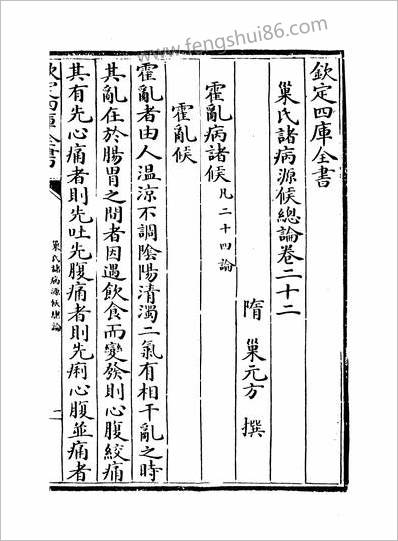 www.fengshui86.com
欽定四庫全書
巢氏諸病源候總論卷二十二
隋 巢元方 撰
霍亂病諸候凡二十四論
霍亂候
霍亂者由人温涼不調陰陽清濁二氣有相干亂之時
其亂在於腸胃之間者因遇飲食而變發則心腹絞痛
其有先心痛者則先吐先腹痛者則先痢心腹並痛者
欽定四庫全書
巢氏諸病源候總論
一